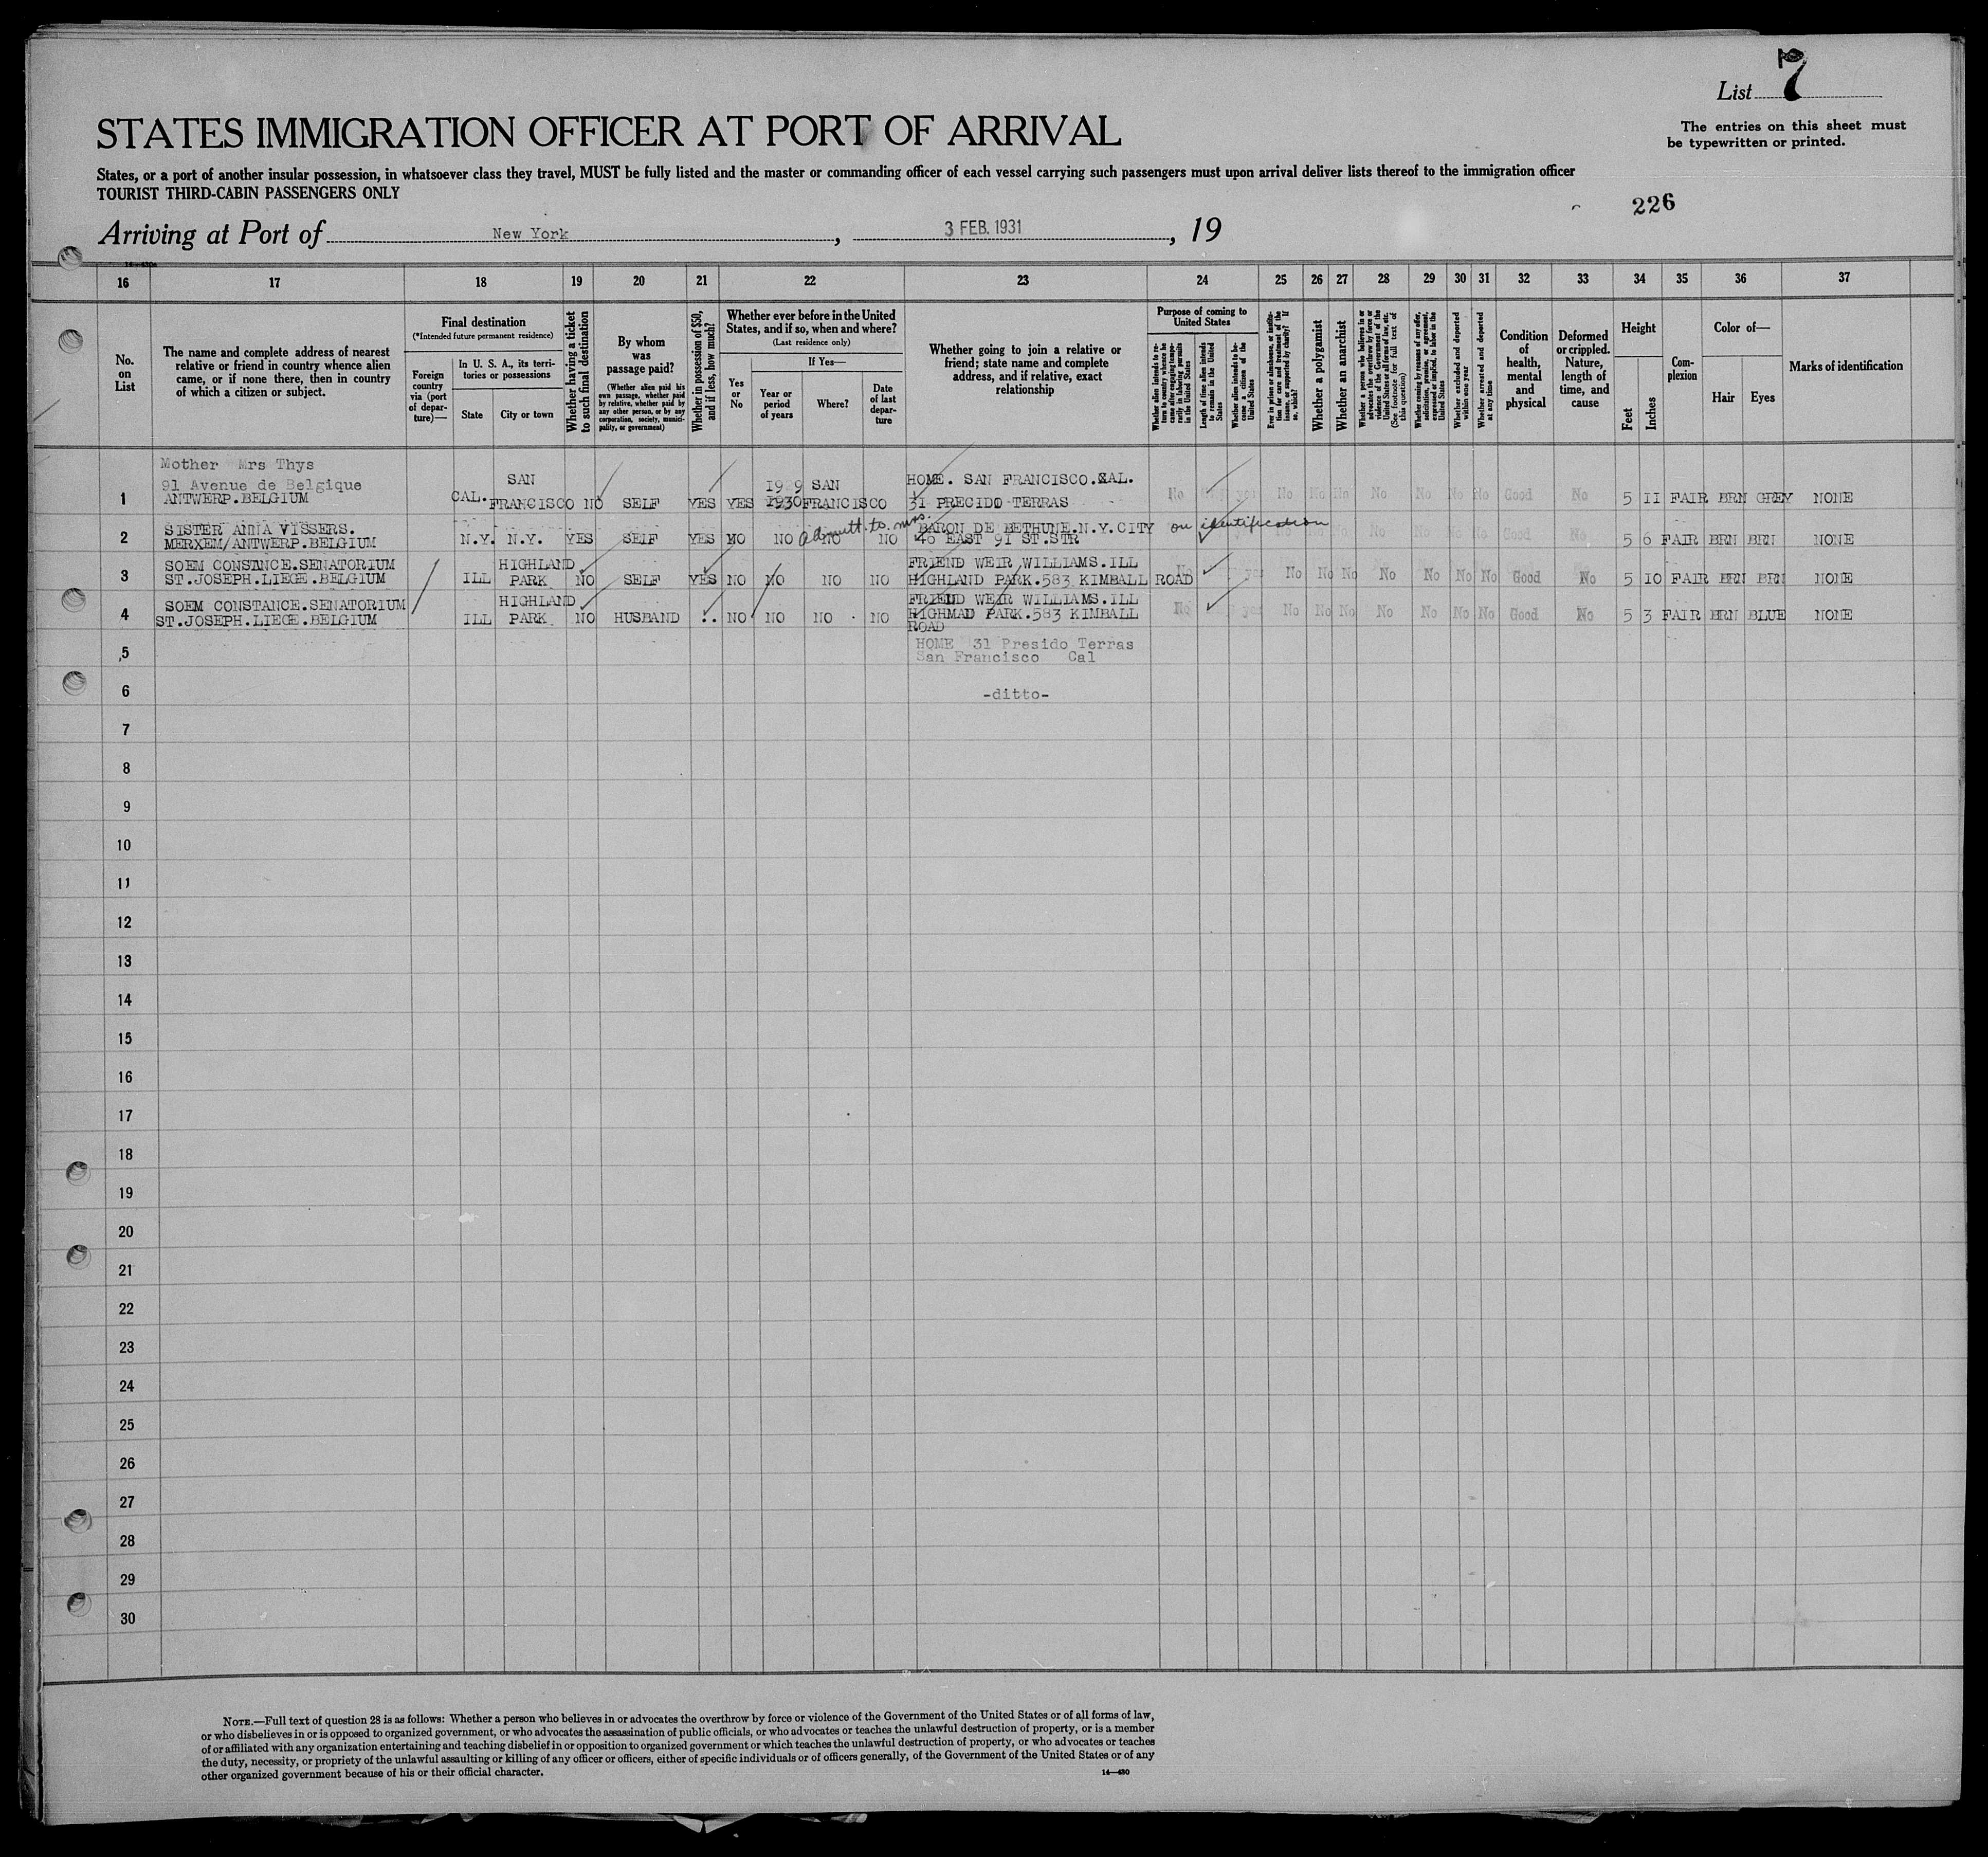 List 7
The entries on this sheet must
be typewritten or printed.
STATES IMMIGRATION OFFICER AT PORT OF ARRIVAL
States, or a port of another insular possession, in whatsoever class they travel, MUST be fully listed and the master or commanding officer of each vessel carrying such passengers must upon arrival deliver lists thereof to the immigration officer
TOURIST THIRD-CABIN PASSENGERS ONLY
226
Arriving at Port of New York, 3 FEB. 1931, 19
16 17 18 19 20 21 22 23 24 25 26 27 28 29 30 31 32 33 34 35 36 37
No.
on
List
The name and complete address of nearest
relative or friend in country whence alien
came, or if none there, then in country
of which a citizen or subject.
Final destination
(*Intended future permanent residence)
Foreign
country
via (port
of depar-
ture)—
In U. S. A., its terri-
tories or possessions
State
City or town
Whether having a ticket
to such final destination
By whom
was
passage paid?
(Whether alien paid his
own passage, whether paid
by relative, whether paid by
any other person, or by any
corporation, society, munici-
pality, or government)
Whether in possession of $50,
and if less, how much?
Whether ever before in the United
States, and if so, when and where?
(Last residence only)
Yes
or
No
If Yes—
Year or
period
of years
Where?
Date
of last
depar-
ture
Whether going to join a relative or
friend; state name and complete
address, and if relative, exact
relationship
Purpose of coming to
United States
Whether alien intends to re-
turn to country whence he
came after engaging tempo-
rarily in laboring pursuits
in the United States
Length of time alien intends
to remain in the United
States
Whether alien intends to be-
come a citizen of the
United States
Ever in prison or almshouse, or institu-
tion for care and treatment of the
insane, or supported by charity? If
so, which?
Whether a polygamist
Whether an anarchist
Whether a person who believes in or
advocates the overthrow by force or
violence of the Government of the
United States or all forms of law, etc.
(See footnote for full text of
this question)
Whether coming by reason of any offer,
solicitation, promise, or agreement,
expressed or implied, to labor in the
United States
Whether excluded and deported
within one year
Whether arrested and deported
at any time
Condition
of
health,
mental
and
physical
Deformed
or crippled.
Nature,
length of
time, and
cause
Height
Feet
Inches
Com-
plexion
Color of—
Hair
Eyes
Marks of identification
Mother Mrs Thys
91 Avenue de Belgique SAN 1929 SAN HOME. SAN FRANCISCO.CAL.
1 ANTWERP.BELGIUM CAL. FRANCISCO NO SELF YES YES 1930 FRANCISCO 31 PRECIDO TERRAS No yes No No No No No No No Good No 5 11 FAIR BRN GREY NONE
SISTER ANNA VISSERS. Admitt. to mrs. BARON DE BETHUNE.N.Y.CITY on identification
2 MERXEM/ANTWERP.BELGIUM N.Y. N.Y. YES SELF YES NO NO NO NO 46 EAST 91 ST.STR No No No No No Good No 5 6 FAIR BRN BRN NONE
SOEM CONSTANCE.SENATORIUM HIGHLAND FRIEND WEIR WILLIAMS.ILL
3 ST.JOSEPH.LIEGE.BELGIUM ILL PARK NO SELF YES NO NO NO NO HIGHLAND PARK.583 KIMBALL ROAD No yes No No No No No No No Good No 5 10 FAIR BRN BRN NONE
SOEM CONSTANCE.SENATORIUM HIGHLAND FRIEUD WEIR WILLIAMS.ILL
4 ST.JOSEPH.LIEGE.BELGIUM ILL PARK NO HUSBAND .. NO NO NO NO HIGHMAD PARK.583 KIMBALL No yes No No No No No No No Good No 5 3 FAIR BRN BLUE NONE
ROAD
5 HOME 31 Presido Terras
San Francisco Cal
6 -ditto-
7
8
9
10
11
12
13
14
15
16
17
18
19
20
21
22
23
24
25
26
27
28
29
30
NOTE.—Full text of question 28 is as follows: Whether a person who believes in or advocates the overthrow by force or violence of the Government of the United States or of all forms of law,
or who disbelieves in or is opposed to organized government, or who advocates the assassination of public officials, or who advocates or teaches the unlawful destruction of property, or is a member
of or affiliated with any organization entertaining and teaching disbelief in or opposition to organized government or which teaches the unlawful destruction of property, or who advocates or teaches
the duty, necessity, or propriety of the unlawful assaulting or killing of any officer or officers, either of specific individuals or of officers generally, of the Government of the United States or of any
other organized government because of his or their official character.
14—430